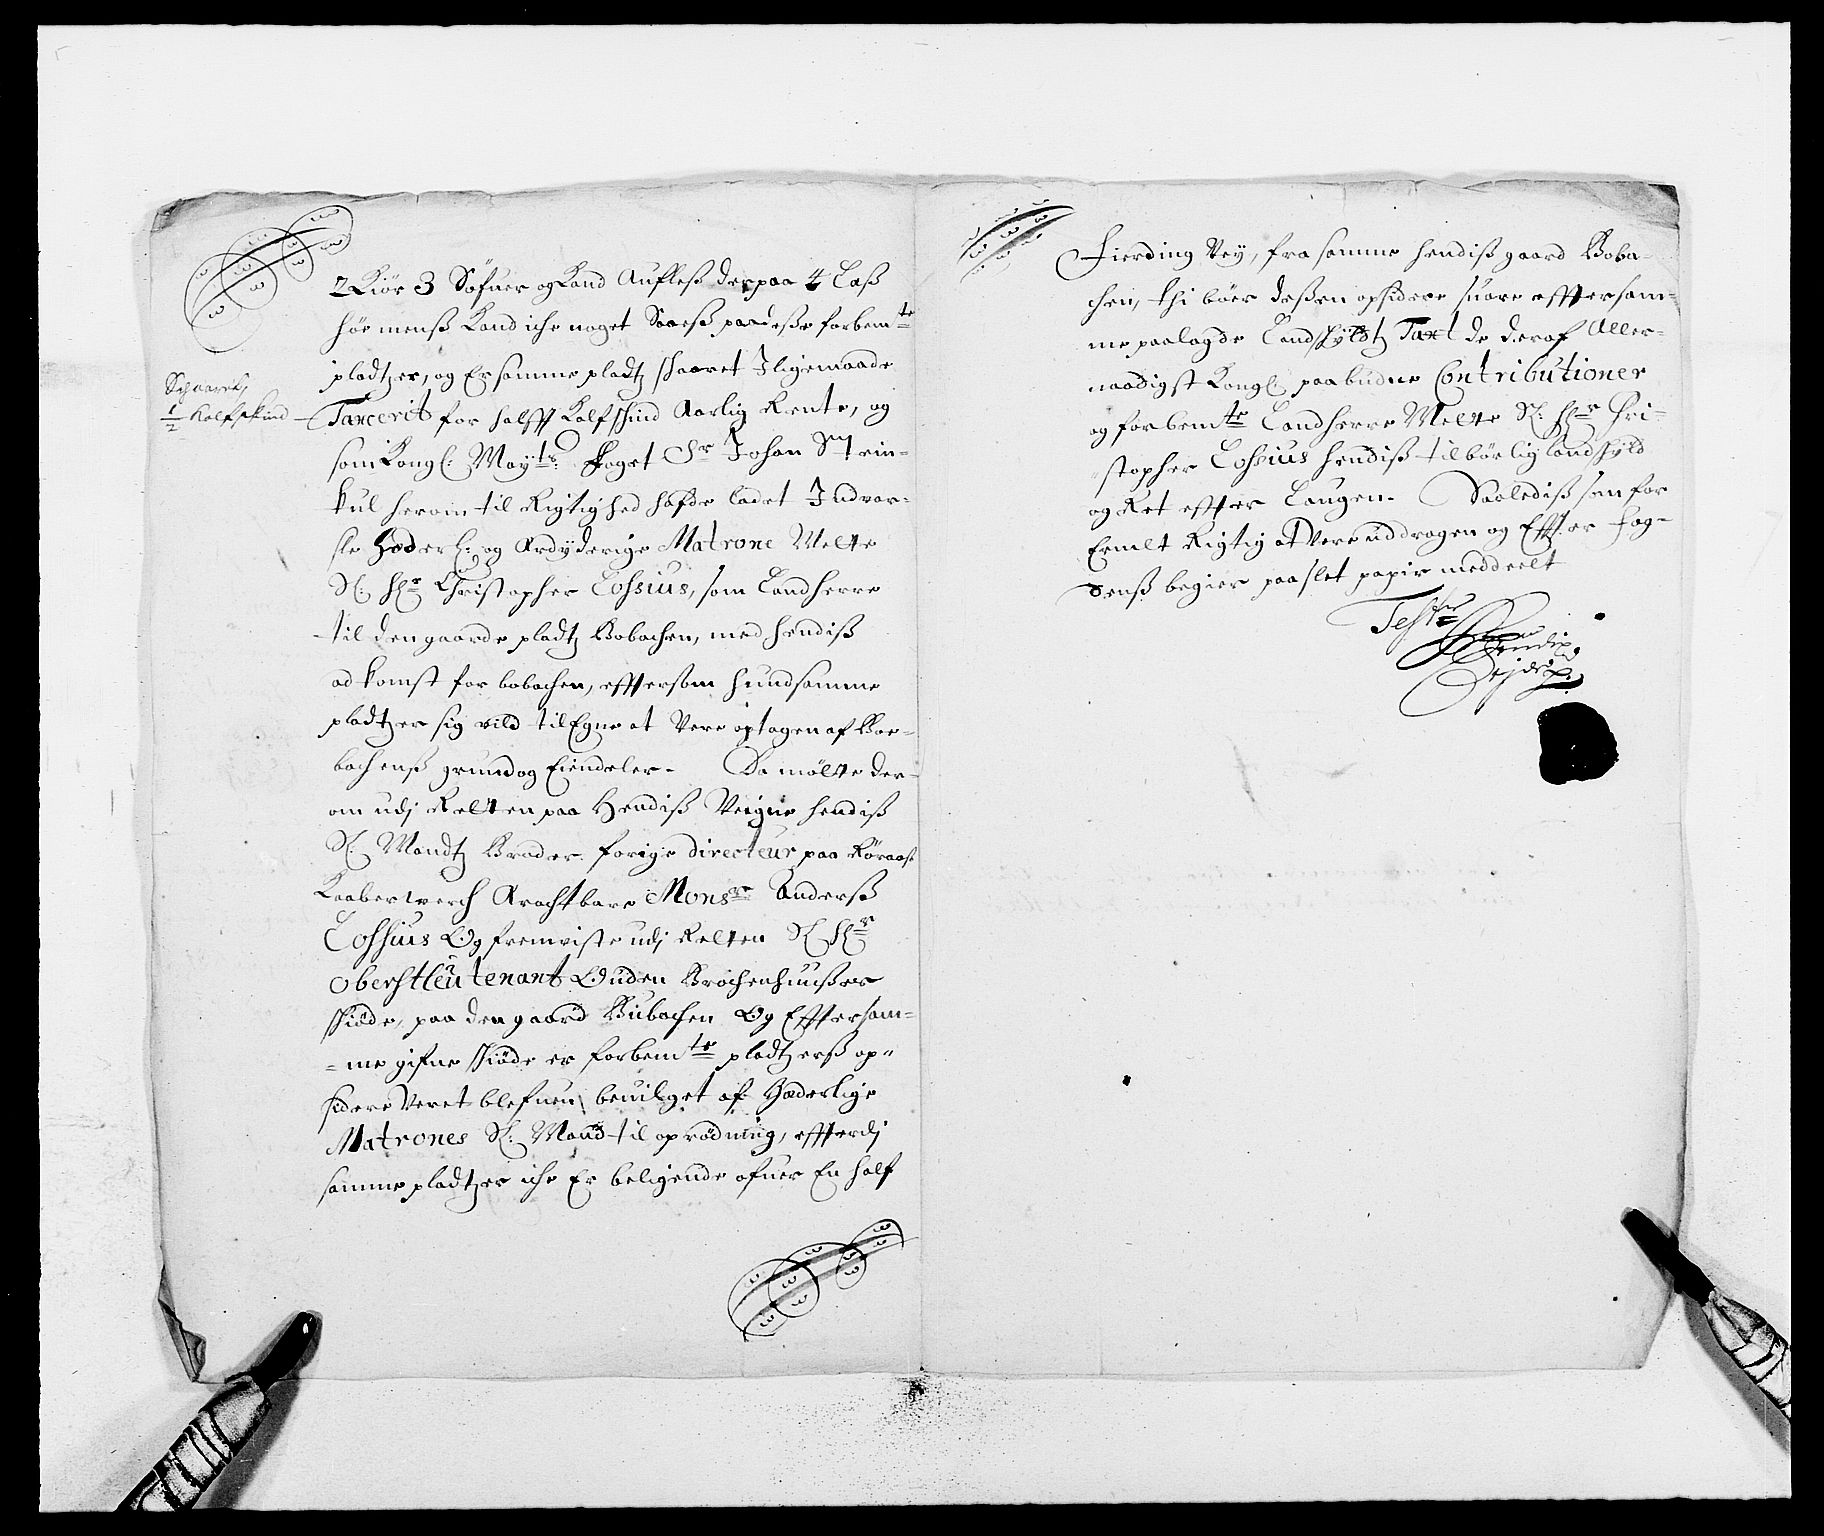 2 Kiør 3 Søfuer og Kand Aufles derpaa 4 Las
høe mens Kand iche noget Saaes paa desse forbemte
pladtzer, og Er samme pladtz schaaret I ligemaade
Schaaret,
1/2 Kalfskind
Taxcerit for halfft Kalfskind Aarlig Rente, og
som Kongl: Maytz: foget Sr Johan Stein-
kul herom til Rigtighed hafde ladet Indvar-
sle Hæderl: og Gudyderige Matrone Welte
Sl: Hr Christopher Lossius, som Landherre
til den gaarde pladtz Bobachen, med hendis
adkomst for bobachen, effersom hund samme
pladtzer sig vild til Egne at Vere optagen af Boe-
bachens grund og Eiendeler - Da møtte der-
om udj Retten paa Hendis Veigne hendis
Sl: Mandtz Broder forige directeur paa Røraas
Kaaberwerch Agachtbare Monsr Anders
Lossius Og fremviste udj Retten Sl Hr
Oberstleutenant Ouden Brochenhuuses
schiøde, paa den gaard Bubachen Og Effter sam-
-me gifne schiøde er forbemte pladtzers op-
sidere Veret blefuen beuilget af Hæderlige
Matrones Sl: Mand til oprødning, effterdj
samme pladtzer iche Er beligende ofuer En half
Fierding Vey, fra samme hendis gaard Boba-
chen, thi bøer dessen opsidere suare effter sam-
me paalagde Landschyldtz Taxt de deraf Aller-
naadigst Kongl: paabudne Contributioner
og forbemte Landherre Welte Sl: Hr Chri-
stopher Lossius hendis tilbørlig landschyld
og Ret effter Laugen - Saaledis som for
Ermelt Rigtig at Vere uddragen og Effter fog-
dens begier paa slet papir meddeelt
Tester